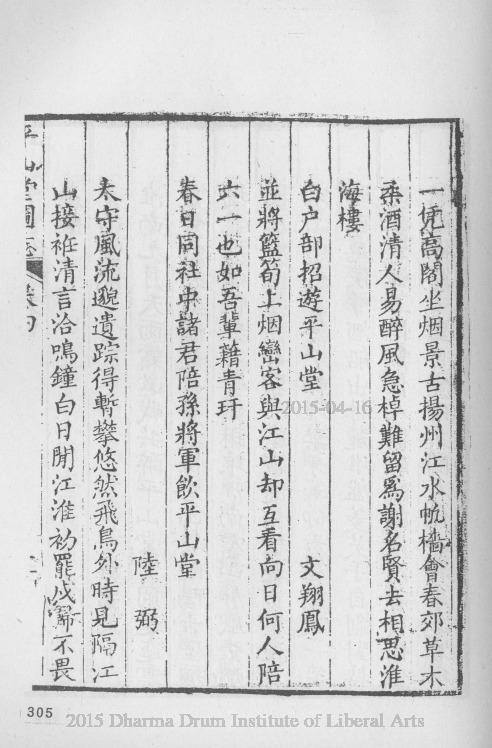 一凭高閣坐烟景古揚州江水帆檣會春郊草木
柔酒清人易醉風急棹難留爲謝名賢去相思淮
海樓
白户部招遊平山堂 文翔鳳
並將籃筍上烟巒客與江山却互看向日何人陪
六一也如吾輩藉青玕
春日同社中諸君陪孫將軍飲平山堂
陸弼
太守風流邈遺踪得暫攀悠然飛鳥外時見隔江
山接袵清言洽鳴鐘白日閒江淮初罷戍不畏
平山堂圖志 卷四
305
2015-04-16
2015 Dharma Drum Institute of Liberal Arts